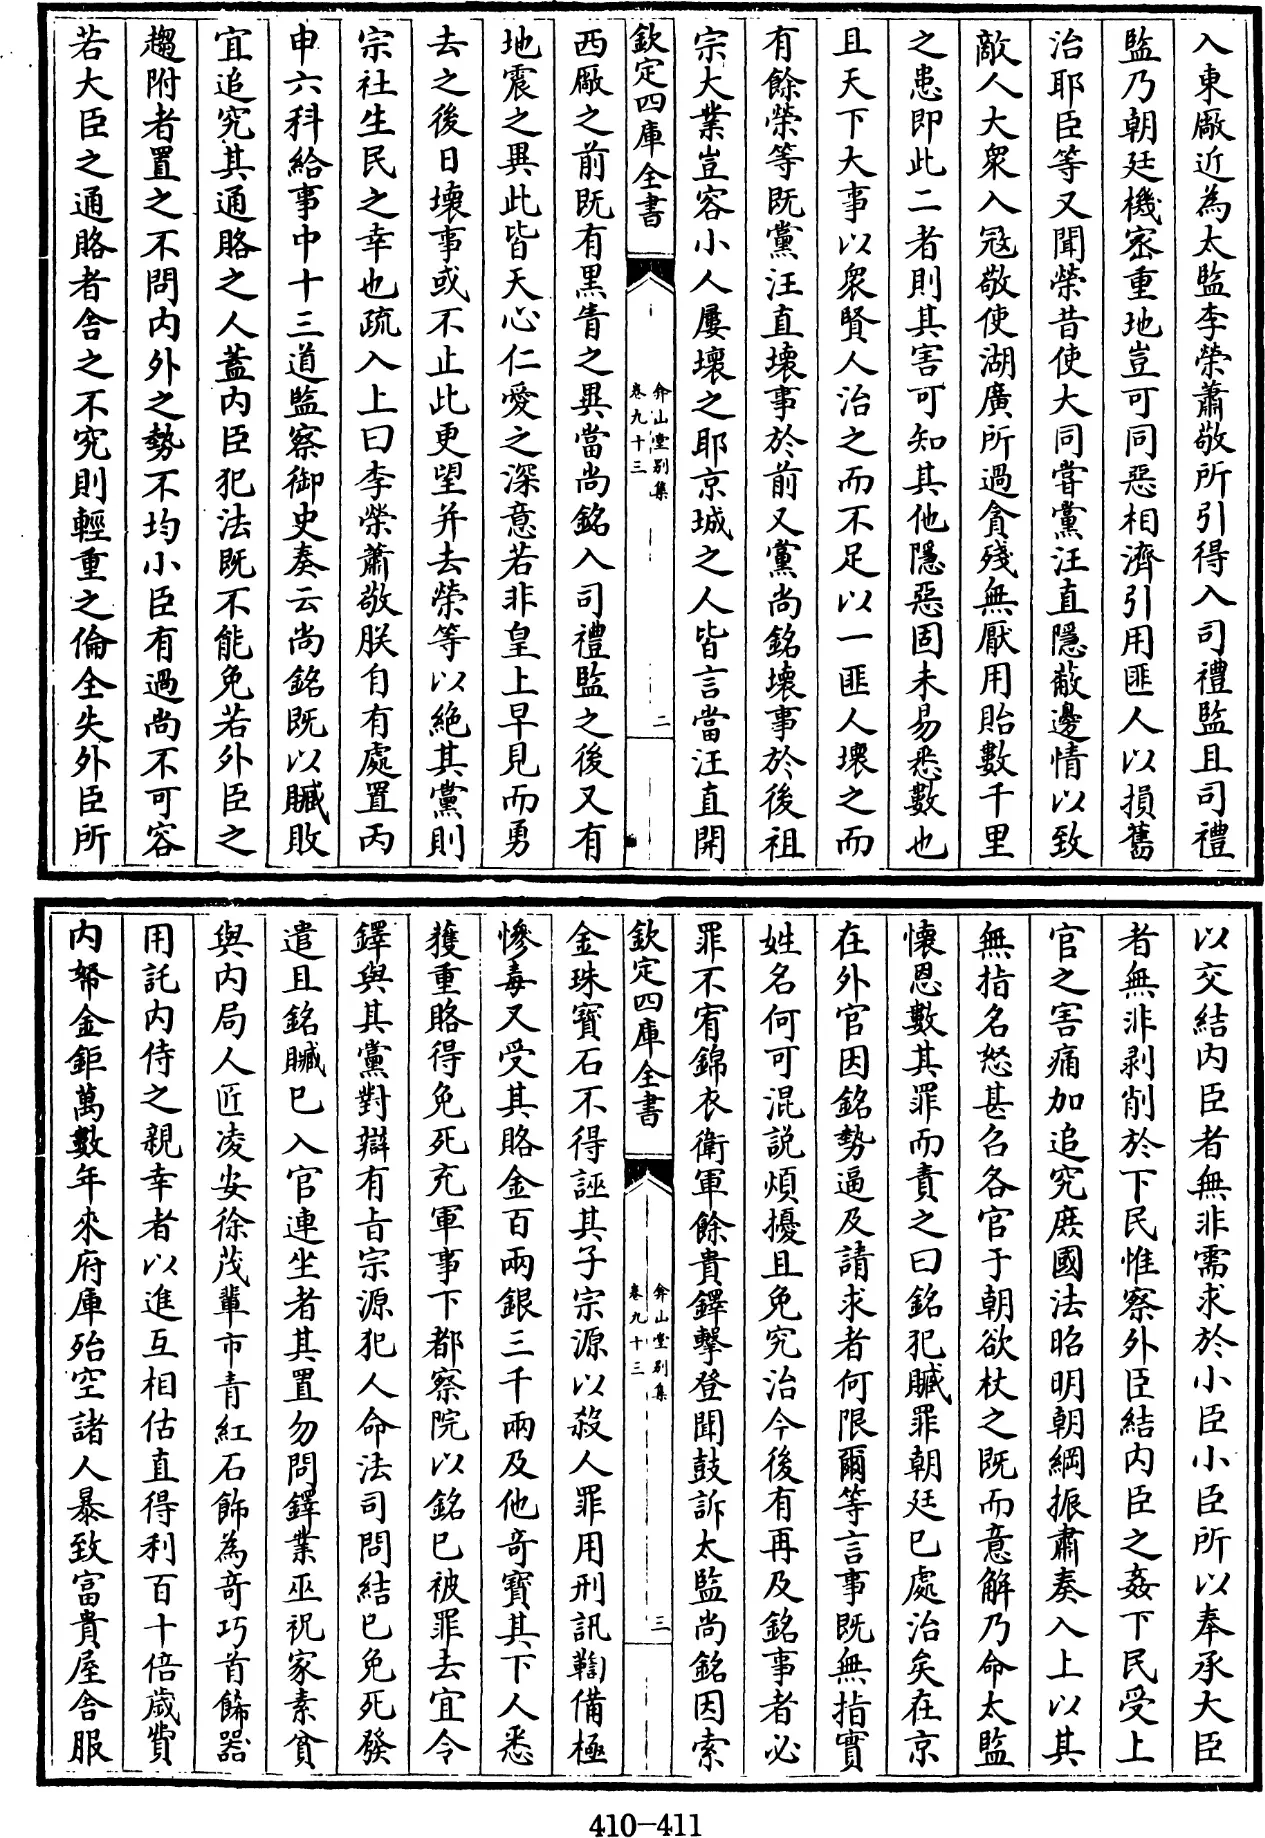 入東厰近為太監李榮蕭敬所引得入司禮監且司禮
監乃朝廷機宻重地豈可同惡相濟引用匪人以損舊
治耶臣等又聞榮昔使大同嘗黨汪直隱蔽邊情以致
敵人大衆入冦敬使湖廣所過貪殘無厭用貽數千里
之患即此二者則其害可知其他隱惡固未易悉數也
且天下大事以衆賢人治之而不足以一匪人壞之而
有餘榮等既黨汪直壊事於前又黨尚銘壊事於後祖
宗大業豈容小人屢壊之耶京城之人皆言當汪直開
欽定四庫全書
弇山堂别集
卷九十三
二
西厰之前既有黒眚之異當尚銘入司禮監之後又有
地震之異此皆天心仁愛之深意若非皇上早見而勇
去之後日壊事或不止此更望并去榮等以絶其黨則
宗社生民之幸也疏入上曰李榮蕭敬朕自有處置丙
申六科給事中十三道監察御史奏云尚銘既以贓敗
宜追究其通賂之人蓋内臣犯法既不能免若外臣之
趨附者置之不問内外之勢不均小臣有過尚不可容
若大臣之通賂者舎之不究則輕重之倫全失外臣所
以交結内臣者無非需求於小臣小臣所以奉承大臣
者無非剥削於下民惟察外臣結内臣之姦下民受上
官之害痛加追究庶國法昭明朝綱振肅奏入上以其
無指名怒甚召各官于朝欲杖之既而意解乃命太監
懐恩數其罪而責之曰銘犯贓罪朝廷已處治矣在京
在外官因銘勢逼及請求者何限爾等言事既無指實
姓名何可混説煩擾且免究治今後有再及銘事者必
罪不宥錦衣衛軍餘貴鐸擊登聞鼓訴太監尚銘因索
欽定四庫全書
弇山堂别集
卷九十三
三
金珠寳石不得誣其子宗源以殺人罪用刑訊鞫備極
慘毒又受其賂金百兩銀三千兩及他竒寳其下人悉
獲重賂得免死充軍事下都察院以銘已被罪去宜令
鐸與其黨對辯有㫖宗源犯人命法司問結已免死發
遣且銘贓已入官連坐者其置勿問鐸業巫祝家素貧
與内局人匠凌安徐茂輩市青紅石飾為竒巧首餙器
用託内侍之親幸者以進互相估直得利百十倍歳費
内帑金鉅萬數年來府庫殆空諸人暴致富貴屋舎服
410-411